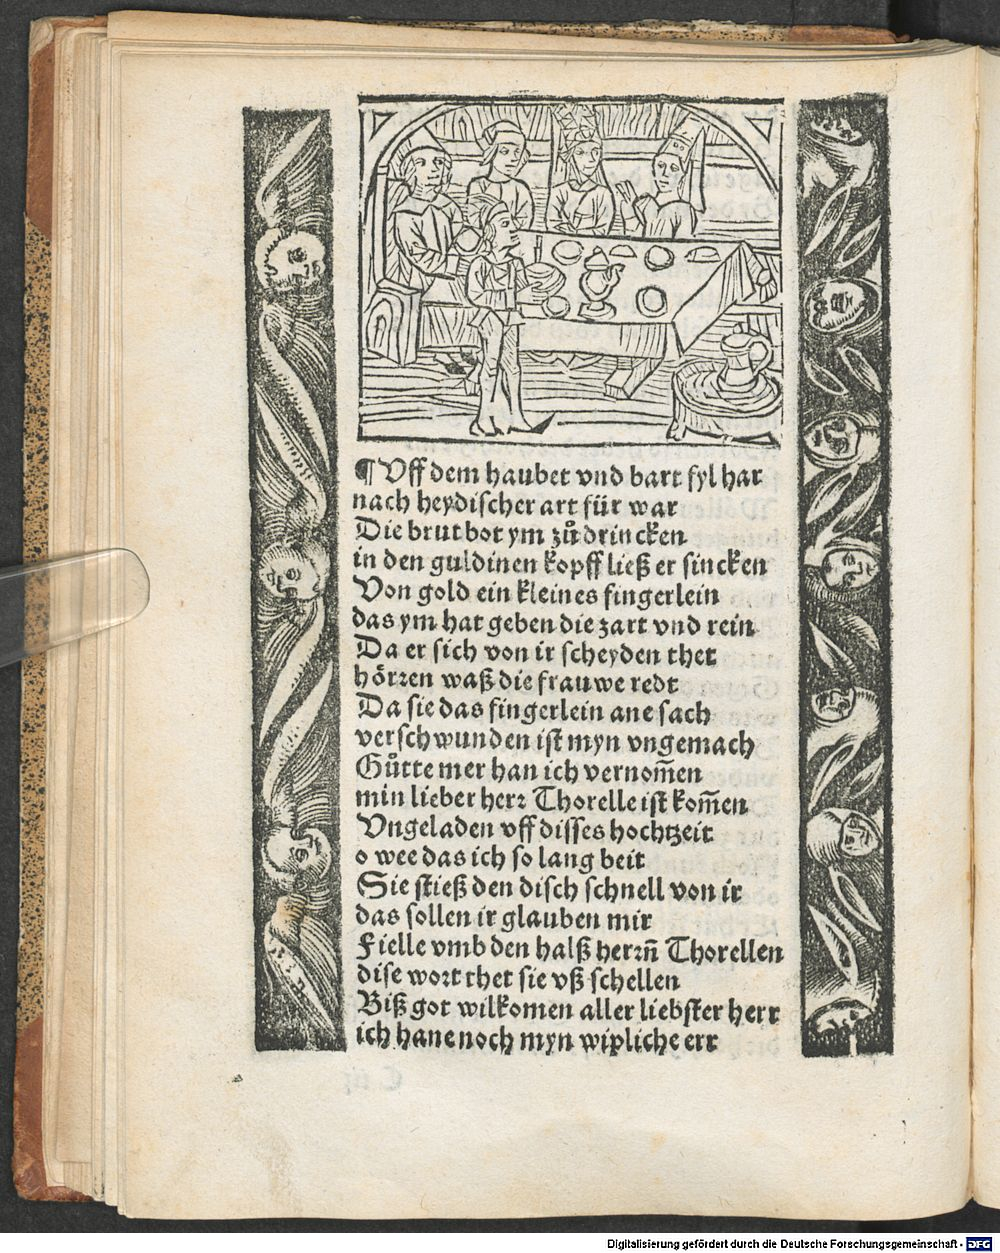 ¶ Vff dem haubet vnd bart fyl har
nach heydischer art für war
Die brut bot ym zů drincken
in den guldinen kopff ließ er sincken
Von gold ein kleines fingerlein
das ym hat geben die zart vnd rein
Da er sich von ir scheyden thet
hörren waß die frauwe redt
Da sie das fingerlein ane sach
verschwunden ist myn vngemach
Gůtte mer han ich vernom̃en
min lieber herr Thorelle ist kom̃en
Vngeladen vff disses hochtzeit
o wee das ich so lang beit
Sie stieß den disch schnell von ir
das sollen ir glauben mir
Fielle vmb den halß herrn̄ Thorellen
dise wort thet sie vß schellen
Biß got wilkomen aller liebster herr
ich hane noch myn wipliche err
Digitalisierung gefördert durch die Deutsche Forschungsgemeinschaft - DFG